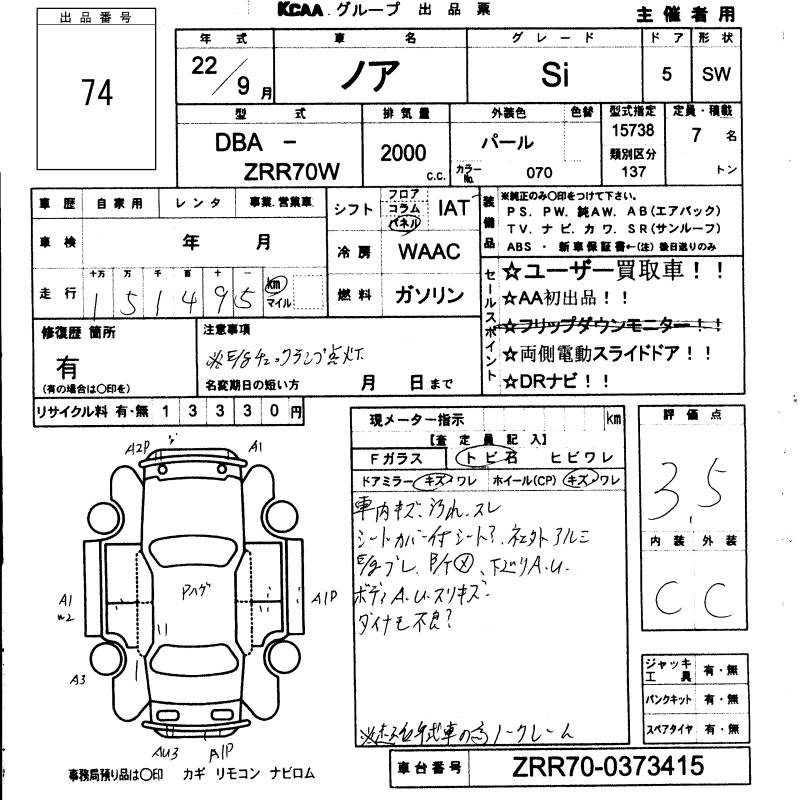 KCAA グループ 出品票
主催者用
出品番号
74
年式 車名 グレード ドア 形状
22/9月 ノア Si 5 SW
型式 排気量 外装色 色替 型式指定 定員・積載
DBA - ZRR70W 2000 c.c. パール カラーNo. 070 15738 類別区分 137 7名 トン
車歴 自家用 レンタ 事業.営業車
シフト フロア コラム パネル IAT
装備品
※純正のみ〇印をつけて下さい。
PS. PW. 純AW. AB(エアバック)
TV. ナビ. カワ. SR(サンルーフ)
ABS ・ 新車保証書←(注)後日送りのみ
車検 年 月
冷房 WAAC
走行 十万 万 千 百 十 一
151495 km マイル
燃料 ガソリン
セールスポイント
☆ユーザー買取車!!
☆AA初出品!!
☆フリップダウンモニター!!
☆両側電動スライドドア!!
☆DRナビ!!
修復歴 箇所
有
(有の場合は〇印を)
注意事項
※E/gチェックランプ点灯
名変期日の短い方 月 日まで
リサイクル料 有・無 13330円
現メーター指示 km
【査定員記入】
Fガラス トビ石 ヒビワレ
ドアミラー キズ・ワレ ホイール(CP) キズ・ワレ
車内キズ、汚れ、スレ
シートカバー付シート?
E/gブレ、
下廻りA.U.
ボディA.U.スリキズ
ダイナモ不良?
ノークレーム
評価点
3.5
内装 外装
C C
A2P A1
A1
W2
アハゲ
A1P
A3
AU3 A1P
ジャッキ 工具 有・無
パンクキット 有・無
スペアタイヤ 有・無
事務局預り品は〇印 カギ リモコン ナビロム
車台番号 ZRR70-0373415